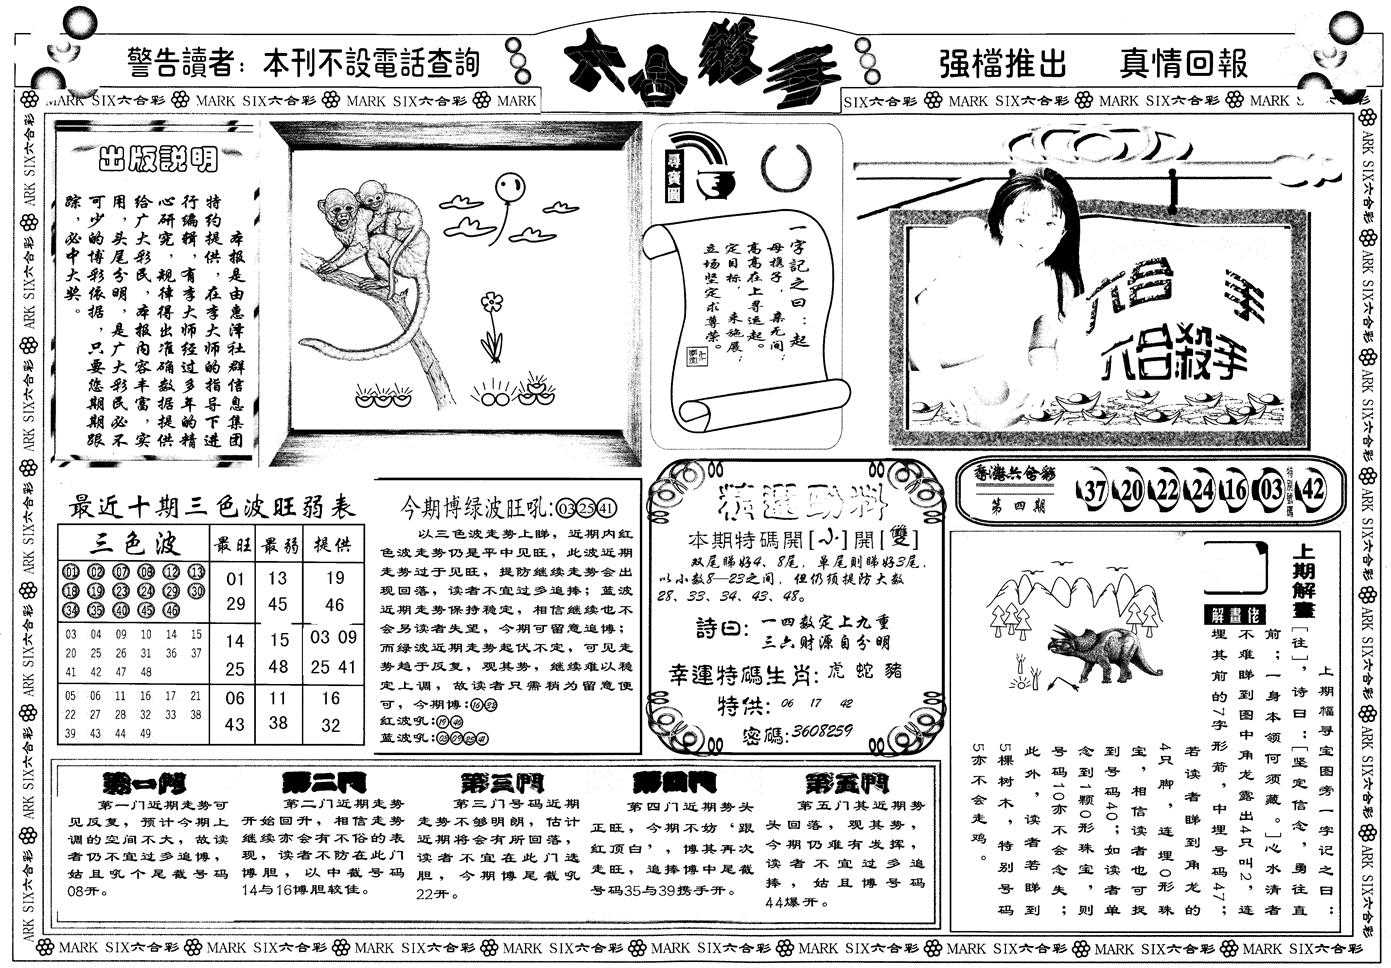 警告讀者：本刊不設電話查詢
六合殺手
强檔推出 真情回報
MARK SIX六合彩 MARK SIX六合彩 MARK SIX六合彩 MARK
SIX六合彩 MARK SIX六合彩 MARK SIX六合彩 MARK
出版説明
本报是由惠泽社群信息集团
特约提供，在李大师的指导下进
行编辑，有李大师经过多年的精
心研究，规律得出准确数据提供
给广大彩民，本报内容丰富，实
用，头尾分明，是广大彩民必不
可少的博彩依据，只要您期期跟
踪，必中大奖。
尋寶圖
一字記之曰：起
母携子，亲无间；
高高在上寻运起。
定目标，来施展；
立场坚定求尊荣。
六合 手
六合殺手
香港六合彩
第四期
37 20 22 24 16 03 特别號碼 42
最近十期三色波旺弱表
三色波 最旺 最弱 提供
01 02 07 08 12 13
18 19 23 24 29 30
34 35 40 45 46
01 13 19
29 45 46
03 04 09 10 14 15
20 25 26 31 36 37
41 42 47 48
14 15 03 09
25 48 25 41
05 06 11 16 17 21
22 27 28 32 33 38
39 43 44 49
06 11 16
43 38 32
今期博绿波旺吼:03 25 41
以三色波走势上睇，近期内红
色波走势仍是平中见旺，此波近期
走势过于见旺，提防继续走势会出
现回落，读者不宜过多追捧；蓝波
近期走势保持稳定，相信继续也不
会易读者失望，今期可留意追博；
而绿波近期走势起伏不定，可见走
势趋于反复，观其势，继续难以稳
定上调，故读者只需稍为留意便
可，今期博:16 32
红波吼:19 46
蓝波吼:03 09 25 41
精選功料
本期特碼開[小]開[雙]
双尾睇好4、8尾，单尾则睇好3尾，
以小数8—23之间，但仍须提防大数
28、33、34、43、48。
詩曰：一四数定上九重
三六财源自分明
幸運特碼生肖：虎 蛇 豬
特供：06 17 42
密碼：3608259
上期解畫
解畫佬
上期幅寻宝图旁一字记之曰：
[往]，诗曰：[坚定信念，勇往直
前；一身本领何须藏。]心水清者
不难睇到图中角龙露出4只叫2，连
埋其前的7字形箭，中埋号码47；
若读者睇到角龙的
4只脚，连埋0形珠
宝，相信读者也可捉
到号码40；如读者单
念到1颗0形珠宝，则
号码10亦不会念失；
此外，读者若睇到
5棵树木，特别号码
5亦不会走鸡。
第一門
第一门近期走势可
见反复，预计今期上
调的空间不大，故读
者仍不宜过多追博，
姑且吼个尾截号码
08开。
第二門
第二门近期走势
开始回升，相信走势
继续亦会有不俗的表
现，读者不防在此门
博胆，以中截号码
14与16博胆较佳。
第三門
第三门号码近期
走势不够明朗，估计
近期将会有所回落，
读者不宜在此门选
胆，今期博尾截吼
22开。
第四門
第四门近期势头
正旺，今期不妨‘跟
红顶白’，博其再次
走旺，追捧博中尾截
号码35与39携手开。
第五門
第五门其近期势
头回落，观其势，
今期仍难有发挥，
读者不宜过多追
捧，姑且博号码
44爆开。
MARK SIX六合彩 MARK SIX六合彩 MARK SIX六合彩 MARK SIX六合彩 MARK SIX六合彩 MARK SIX六合彩 MARK SIX六合彩 MARK SIX六合彩 MARK SIX六合彩